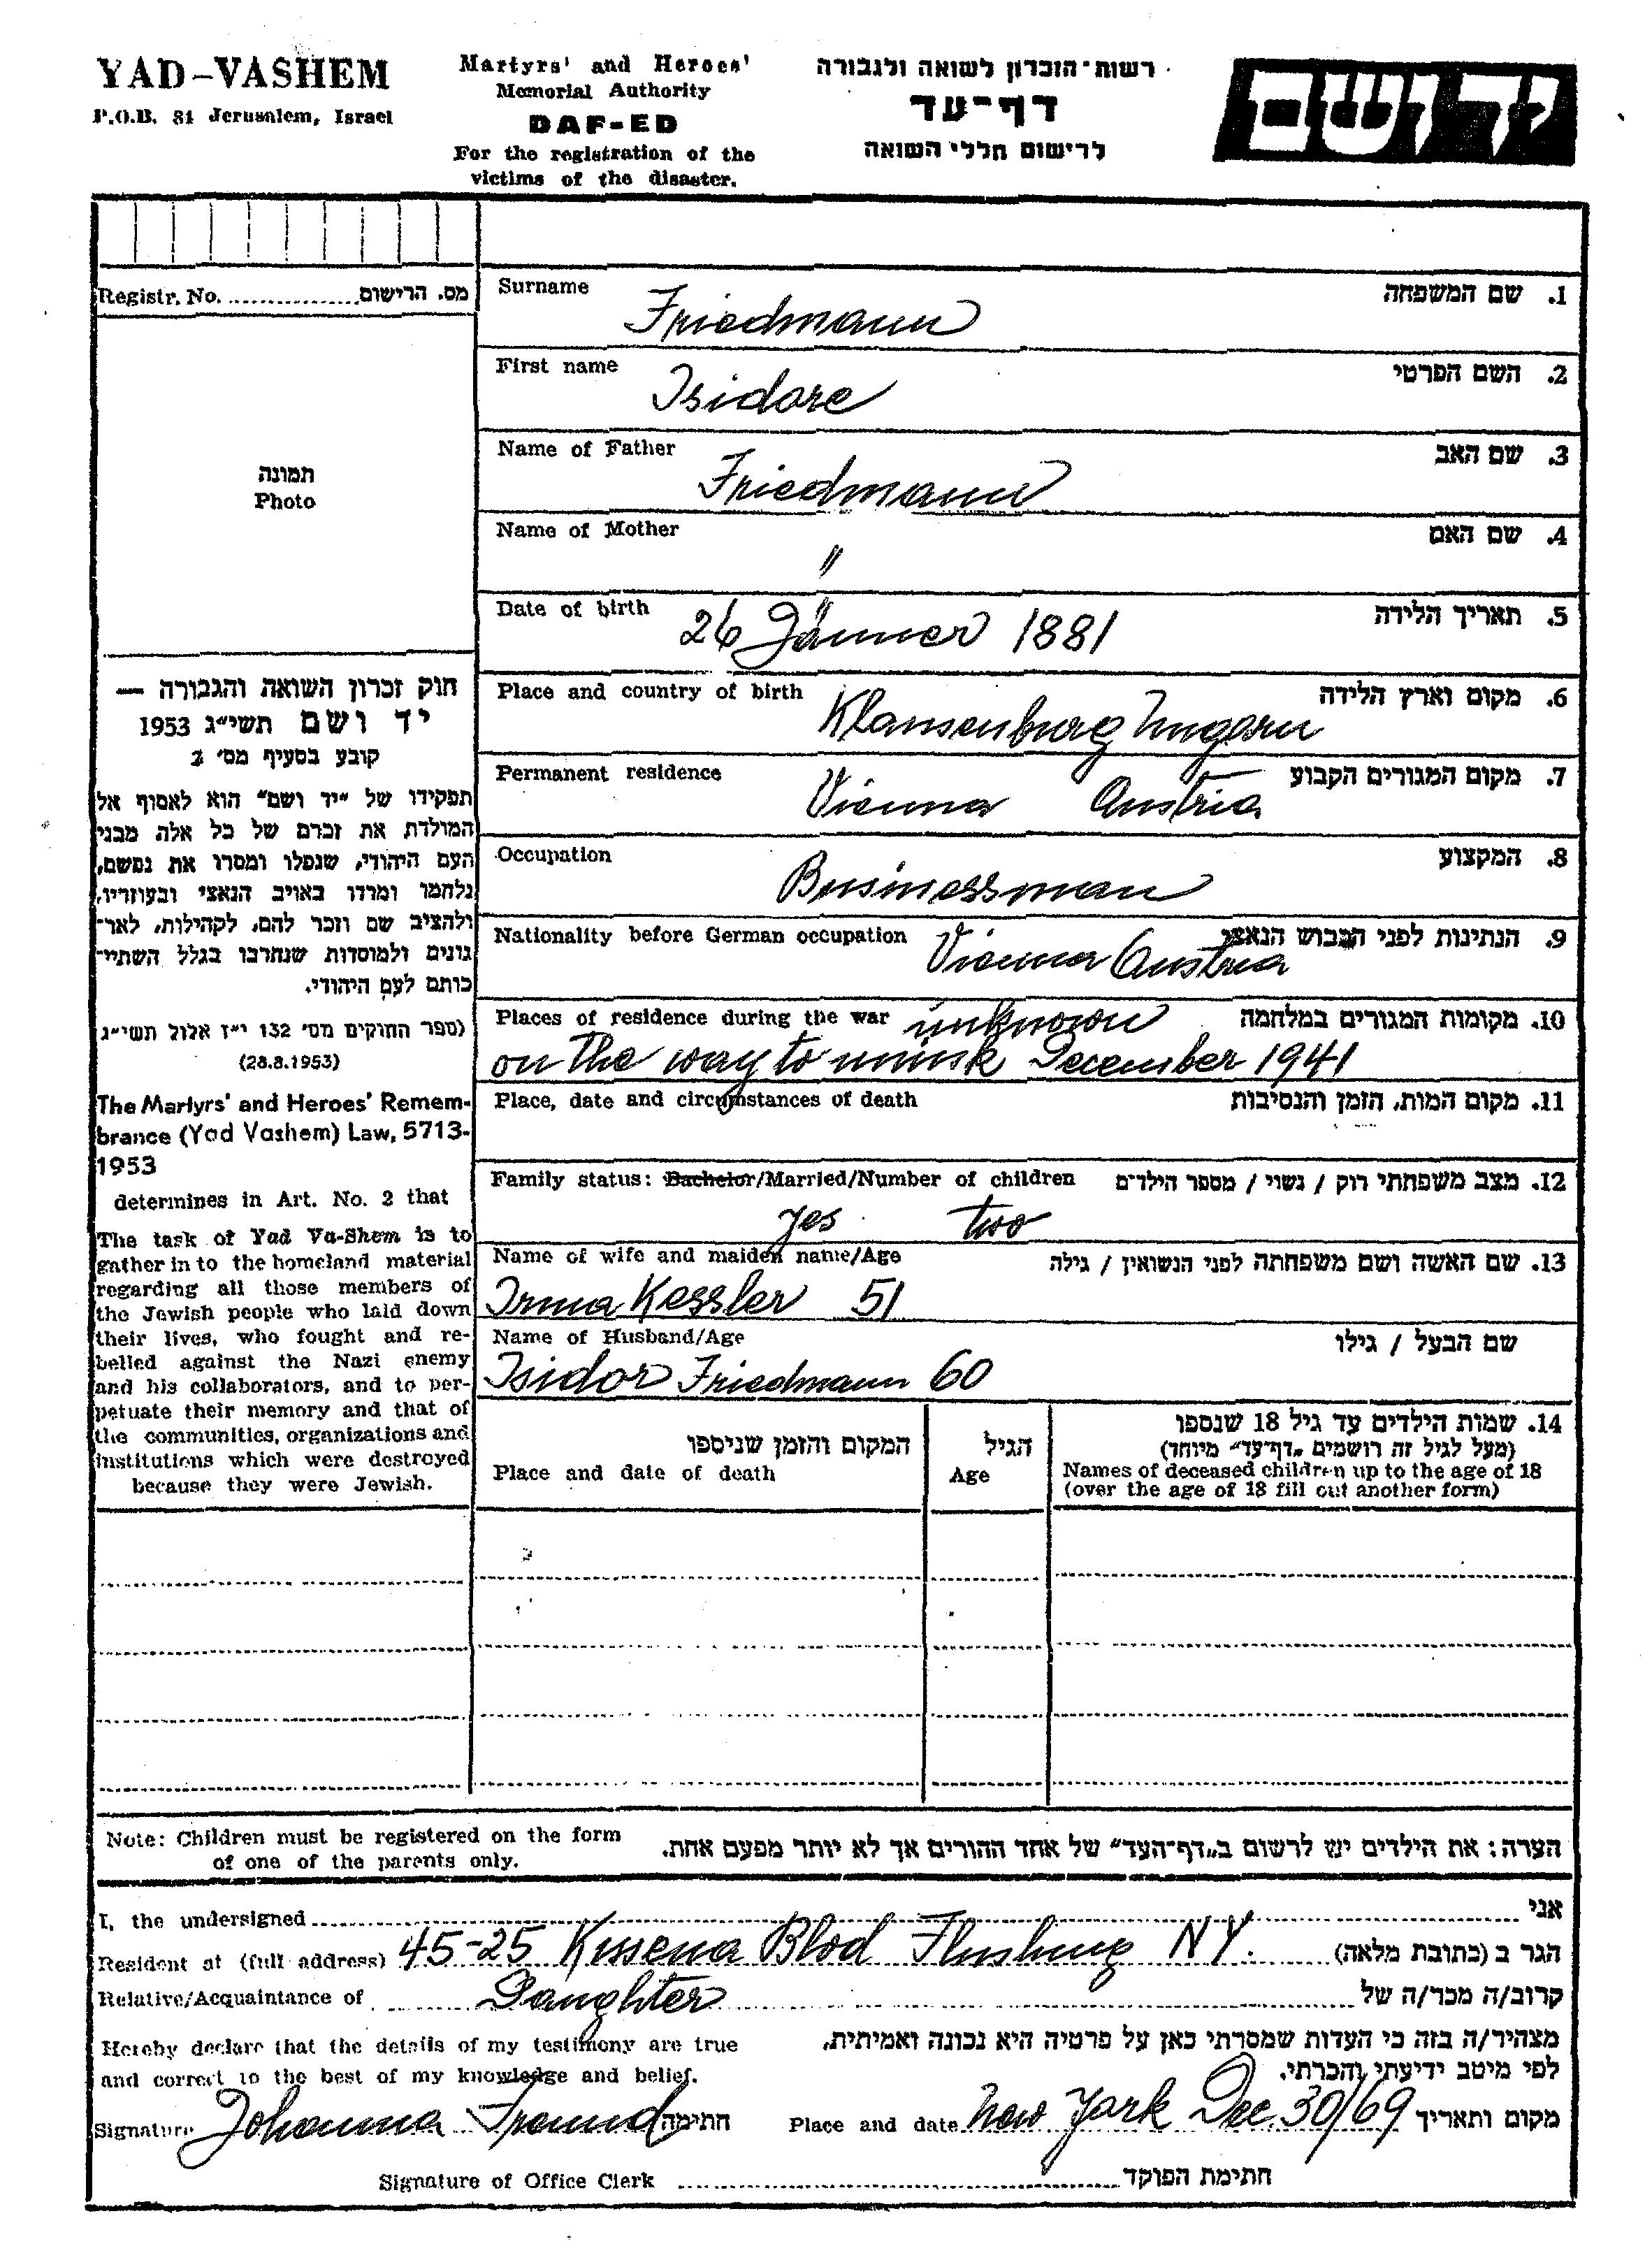 YAD-VASHEM
P.O.B. 84 Jerusalem, Israel
Martyrs' and Heroes'
Memorial Authority
DAF-ED
For the registration of the
victims of the disaster.
רשות־הזכרון לשואה ולגבורה
דף־עד
לרישום חללי השואה
יד ושם
Registr. No. .................. מס. הרישום
תמונה
Photo
חוק זכרון השואה והגבורה —
יד ושם תשי״ג 1953
קובע בסעיף מס׳ 2
תפקידו של ״יד ושם״ הוא לאסוף אל
המולדת את זכרם של כל אלה מבני
העם היהודי, שנפלו ומסרו את נפשם,
נלחמו ומרדו באויב הנאצי ובעוזריו,
ולהציב שם וזכר להם, לקהילות, לאר־
גונים ולמוסדות שנחרבו בגלל השתיי־
כותם לעם היהודי.
(ספר החוקים מס׳ 132 י״ז אלול תשי״ג
(28.8.1953)
The Martyrs' and Heroes' Remem-
brance (Yad Vashem) Law, 5713-
1953
determines in Art. No. 2 that
The task of Yad Va-Shem is to
gather in to the homeland material
regarding all those members of
the Jewish people who laid down
their lives, who fought and re-
belled against the Nazi enemy
and his collaborators, and to per-
petuate their memory and that of
the communities, organizations and
institutions which were destroyed
because they were Jewish.
Surname Friedmann 1. שם המשפחה
First name Isidore 2. השם הפרטי
Name of Father Friedmann 3. שם האב
Name of Mother " 4. שם האם
Date of birth 26 Jänner 1881 5. תאריך הלידה
Place and country of birth Klausenburg Ungarn 6. מקום וארץ הלידה
Permanent residence Vienna Austria 7. מקום המגורים הקבוע
Occupation Businessman 8. המקצוע
Nationality before German occupation Vienna Austria 9. הנתינות לפני הכבוש הנאצי
Places of residence during the war unknown 10. מקומות המגורים במלחמה
on the way to minsk December 1941
Place, date and circumstances of death 11. מקום המות, הזמן והנסיבות
Family status: Bachelor/Married/Number of children 12. מצב משפחתי רוק / נשוי / מספר הילדים
yes two
Name of wife and maiden name/Age 13. שם האשה ושם משפחתה לפני הנשואין / גילה
Irma Kessler 51
Name of Husband/Age שם הבעל / גילו
Isidor Friedmann 60
המקום והזמן שניספו
Place and date of death
הגיל
Age
14. שמות הילדים עד גיל 18 שנספו
(מעל לגיל זה רושמים ״דף־עד״ מיוחד)
Names of deceased children up to the age of 18
(over the age of 18 fill out another form)
Note: Children must be registered on the form
of one of the parents only.
הערה: את הילדים יש לרשום ב״דף־העד״ של אחד ההורים אך לא יותר מפעם אחת.
I, the undersigned .................. אני
Resident at (full address) 45-25 Kissena Blvd Flushing NY. הגר ב (כתובת מלאה)
Relative/Acquaintance of Daughter קרוב/ה מכר/ה של
Hereby declare that the details of my testimony are true
and correct to the best of my knowledge and belief.
מצהיר/ה בזה כי העדות שמסרתי כאן על פרטיה היא נכונה ואמיתית.
לפי מיטב ידיעתי והכרתי.
Signature Johanna Freund חתימה Place and date New York Dec. 30/69 מקום ותאריך
Signature of Office Clerk .................. חתימת הפוקד